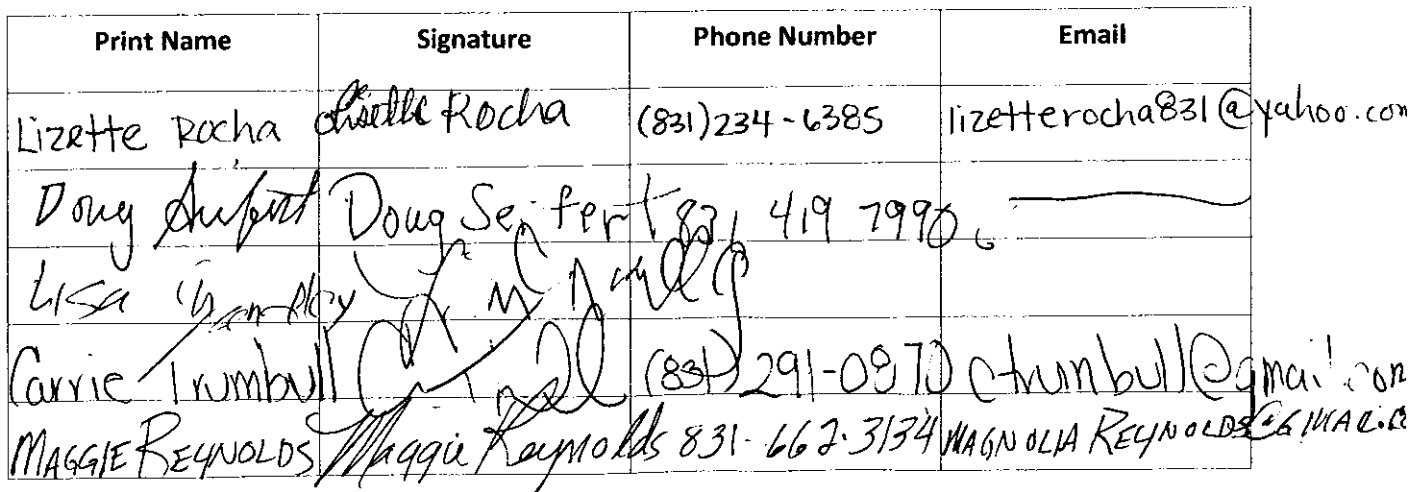 Print Name Signature Phone Number Email
Lizette Rocha Lizette Rocha (831)234-6385 lizetterocha831@yahoo.com
Doug Seifert Doug Seifert 831 419 7990
Lisa
Carrie Trumbull (831) 291-0870 ctrumbull@gmail.com
MAGGIE REYNOLDS Maggie Reynolds 831-662-3134 MAGNOLIA REYNOLDS@GMAIL.CO